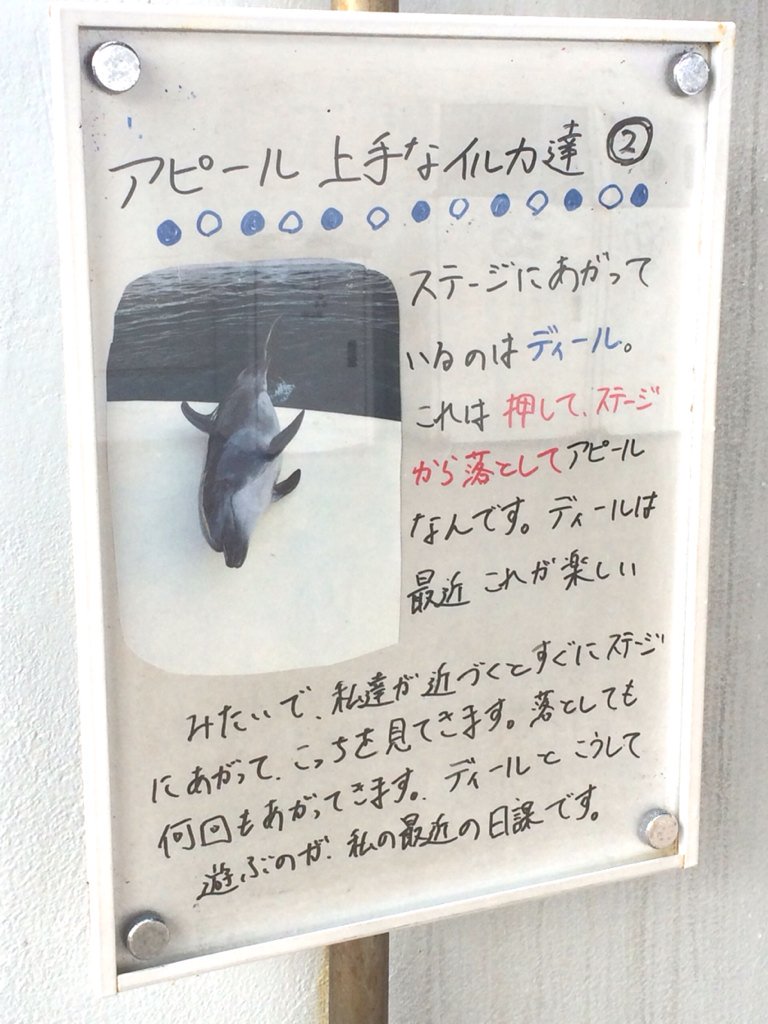 アピール上手なイルカ達 ②
ステージにあがって
いるのはディール。
これは押して、ステージ
から落としてアピール
なんです。ディールは
最近これが楽しい
みたいで、私達が近づくとすぐにステージ
にあがって、こっちを見てきます。落としても
何回もあがってきます。ディールとこうして
遊ぶのが、私の最近の日課です。